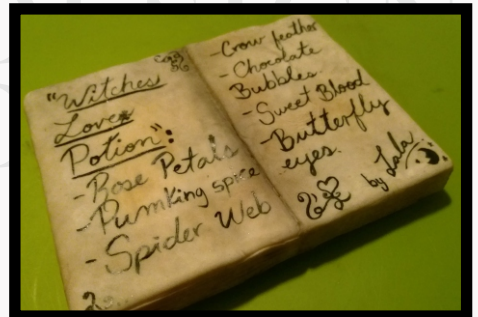 "Witches
Love
Potion":
-Rose Petals
-Pumking spice
-Spider Web
-Crow feather
-Chocolate
Bubbles
-Sweet Blood
-Butterfly
eyes.
by Lala